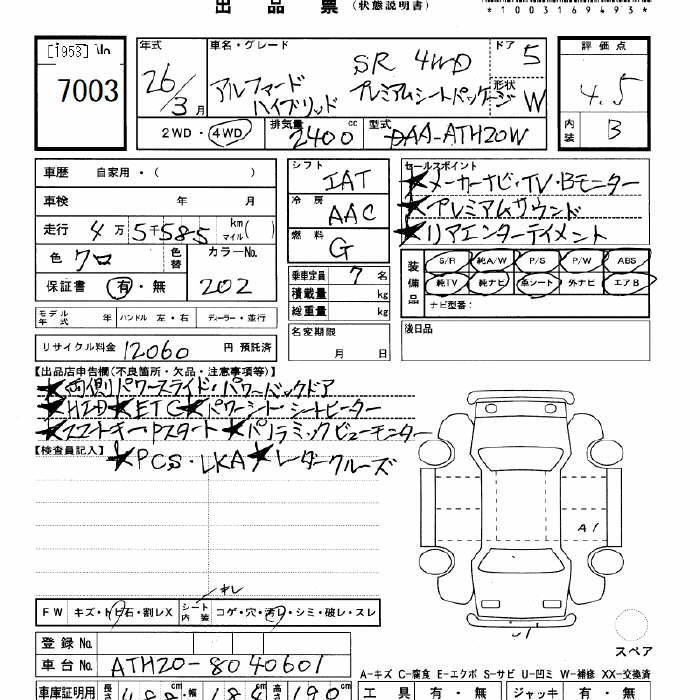 出品票（状態説明書）
*1003169493*
[1953] 7003
年式 26/3月
車名・グレード アルファード ハイブリッド SR 4WD プレミアムシートパッケージ
ドア 5
形状 W
評価点 4.5
内装 B
2WD・4WD 排気量 2400cc 型式 DAA-ATH20W
車歴 自家用・（ ）
車検 年 月
走行 4万5千585 km マイル( )
色 クロ 色替 カラーNo. 202
保証書 有・無
シフト IAT
冷房 AAC
燃料 G
乗車定員 7名
積載量 kg
総重量 kg
名変期限 月 日
セールスポイント
★メーカーナビ・TV・Bモニター
★プレミアムサウンド
★リアエンターテイメント
装備品 S/R 純A/W P/S P/W ABS
純TV 純ナビ 革シート 外ナビ エアB
ナビ型番：
後日品
モデル年式 年 ハンドル 左・右 ディーラー・並行
リサイクル料金 12060 円 預託済
【出品店申告欄（不良箇所・欠品・注意事項等）】
★両側パワースライド・パワーバックドア
★HID★ETC★パワーシート・シートヒーター
★スマートキー・Pスタート★パノラミックビューモニター
★PCS・LKA★レーダークルーズ
【検査員記入】
A1
スペア
FW キズ・トビ石・割レX シート内装 コゲ・穴・汚レ・シミ・破レ・スレ
キレ
登録No.
車台No. ATH20-8040601
A-キズ C-腐食 E-エクボ S-サビ U-凹ミ W-補修 XX-交換済
車庫証明用 長さ 488cm 幅 184cm 高さ 190cm
工具 有・無 ジャッキ 有・無